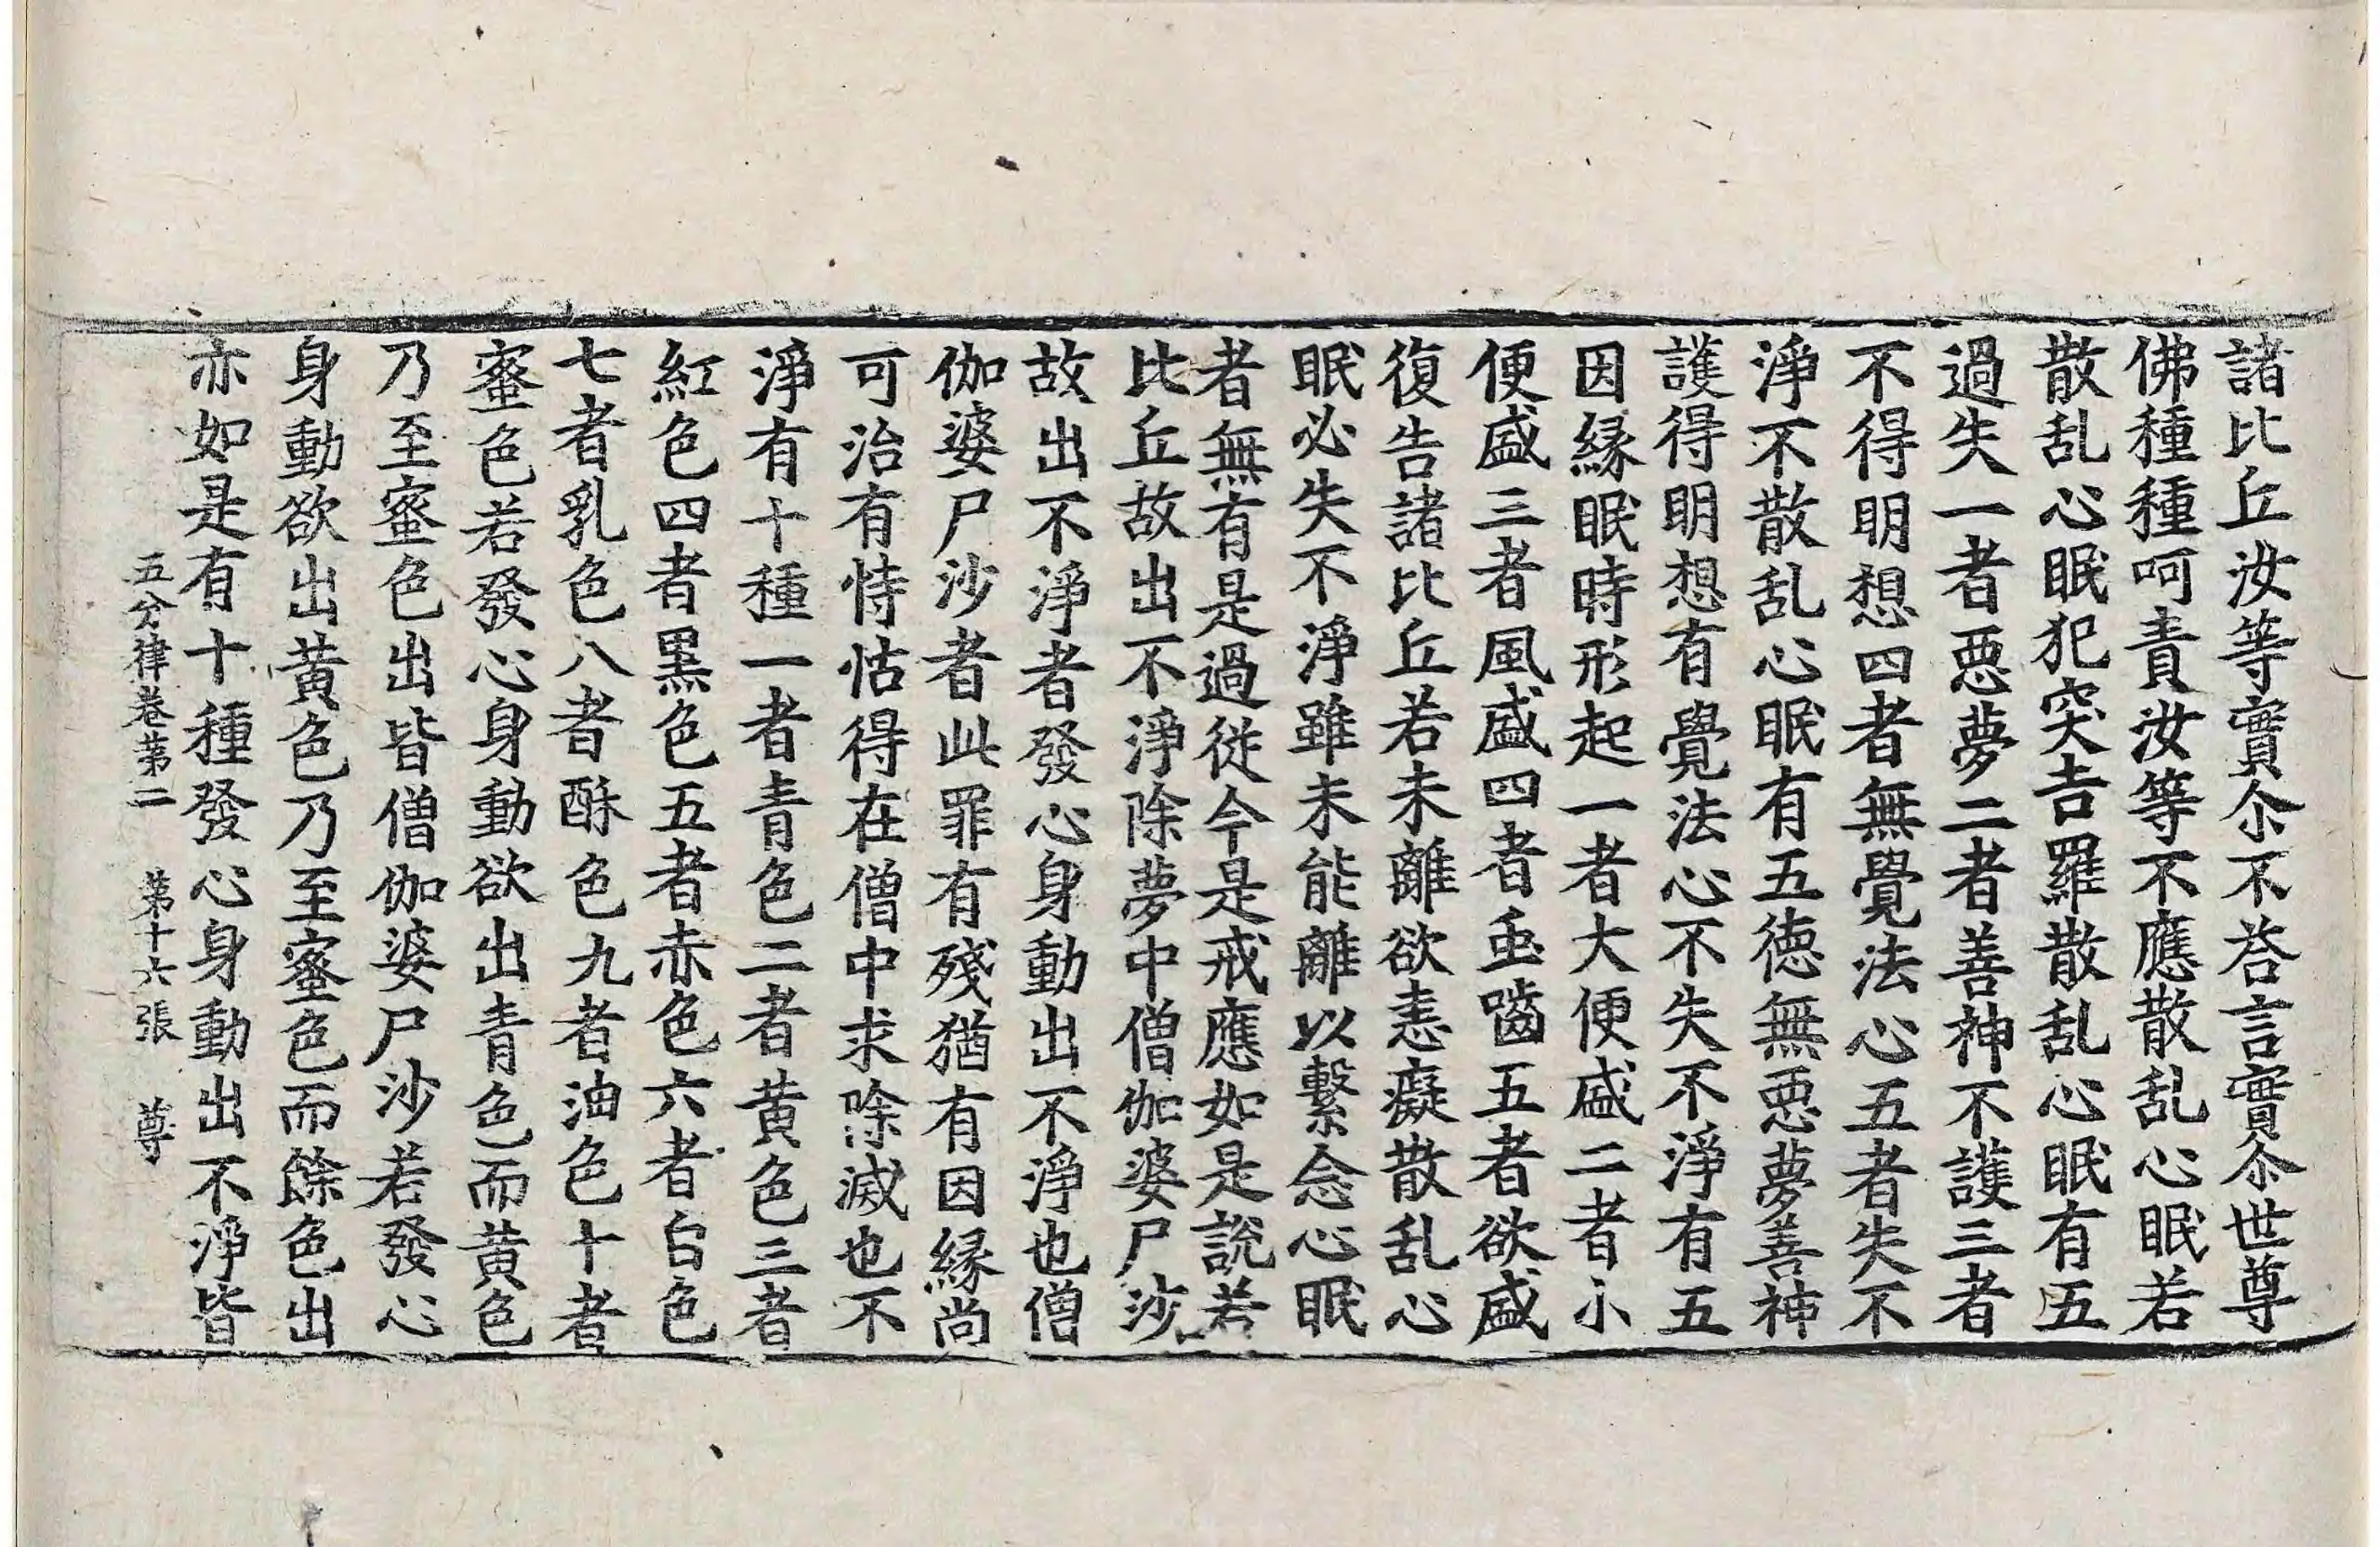 諸比丘汝等實尒不荅言實尒世尊
佛種種呵責汝等不應散乱心眠若
散乱心眠犯突吉羅散乱心眠有五
過失一者惡夢二者善神不護三者
不得明想四者無覺法心五者失不
淨不散乱心眠有五德無惡夢善神
護得明想有覺法心不失不淨有五
因緣眠時形起一者大便盛二者小
便盛三者風盛四者虫嚙五者欲盛
復告諸比丘若未離欲恚癡散乱心
眠必失不淨雖未能離以繫念心眠
者無有是過從今是戒應如是說若
比丘故出不淨除夢中僧伽婆尸沙
故出不淨者發心身動出不淨也僧
伽婆尸沙者此罪有殘猶有因緣尚
可治有恃怙得在僧中求除滅也不
淨有十種一者青色二者黃色三者
紅色四者黑色五者赤色六者白色
七者乳色八者酥色九者油色十者
蜜色若發心身動欲出青色而黃色
乃至蜜色出皆僧伽婆尸沙若發心
身動欲出黃色乃至蜜色而餘色出
亦如是有十種發心身動出不淨皆
五分律卷第二 第十六張 尊